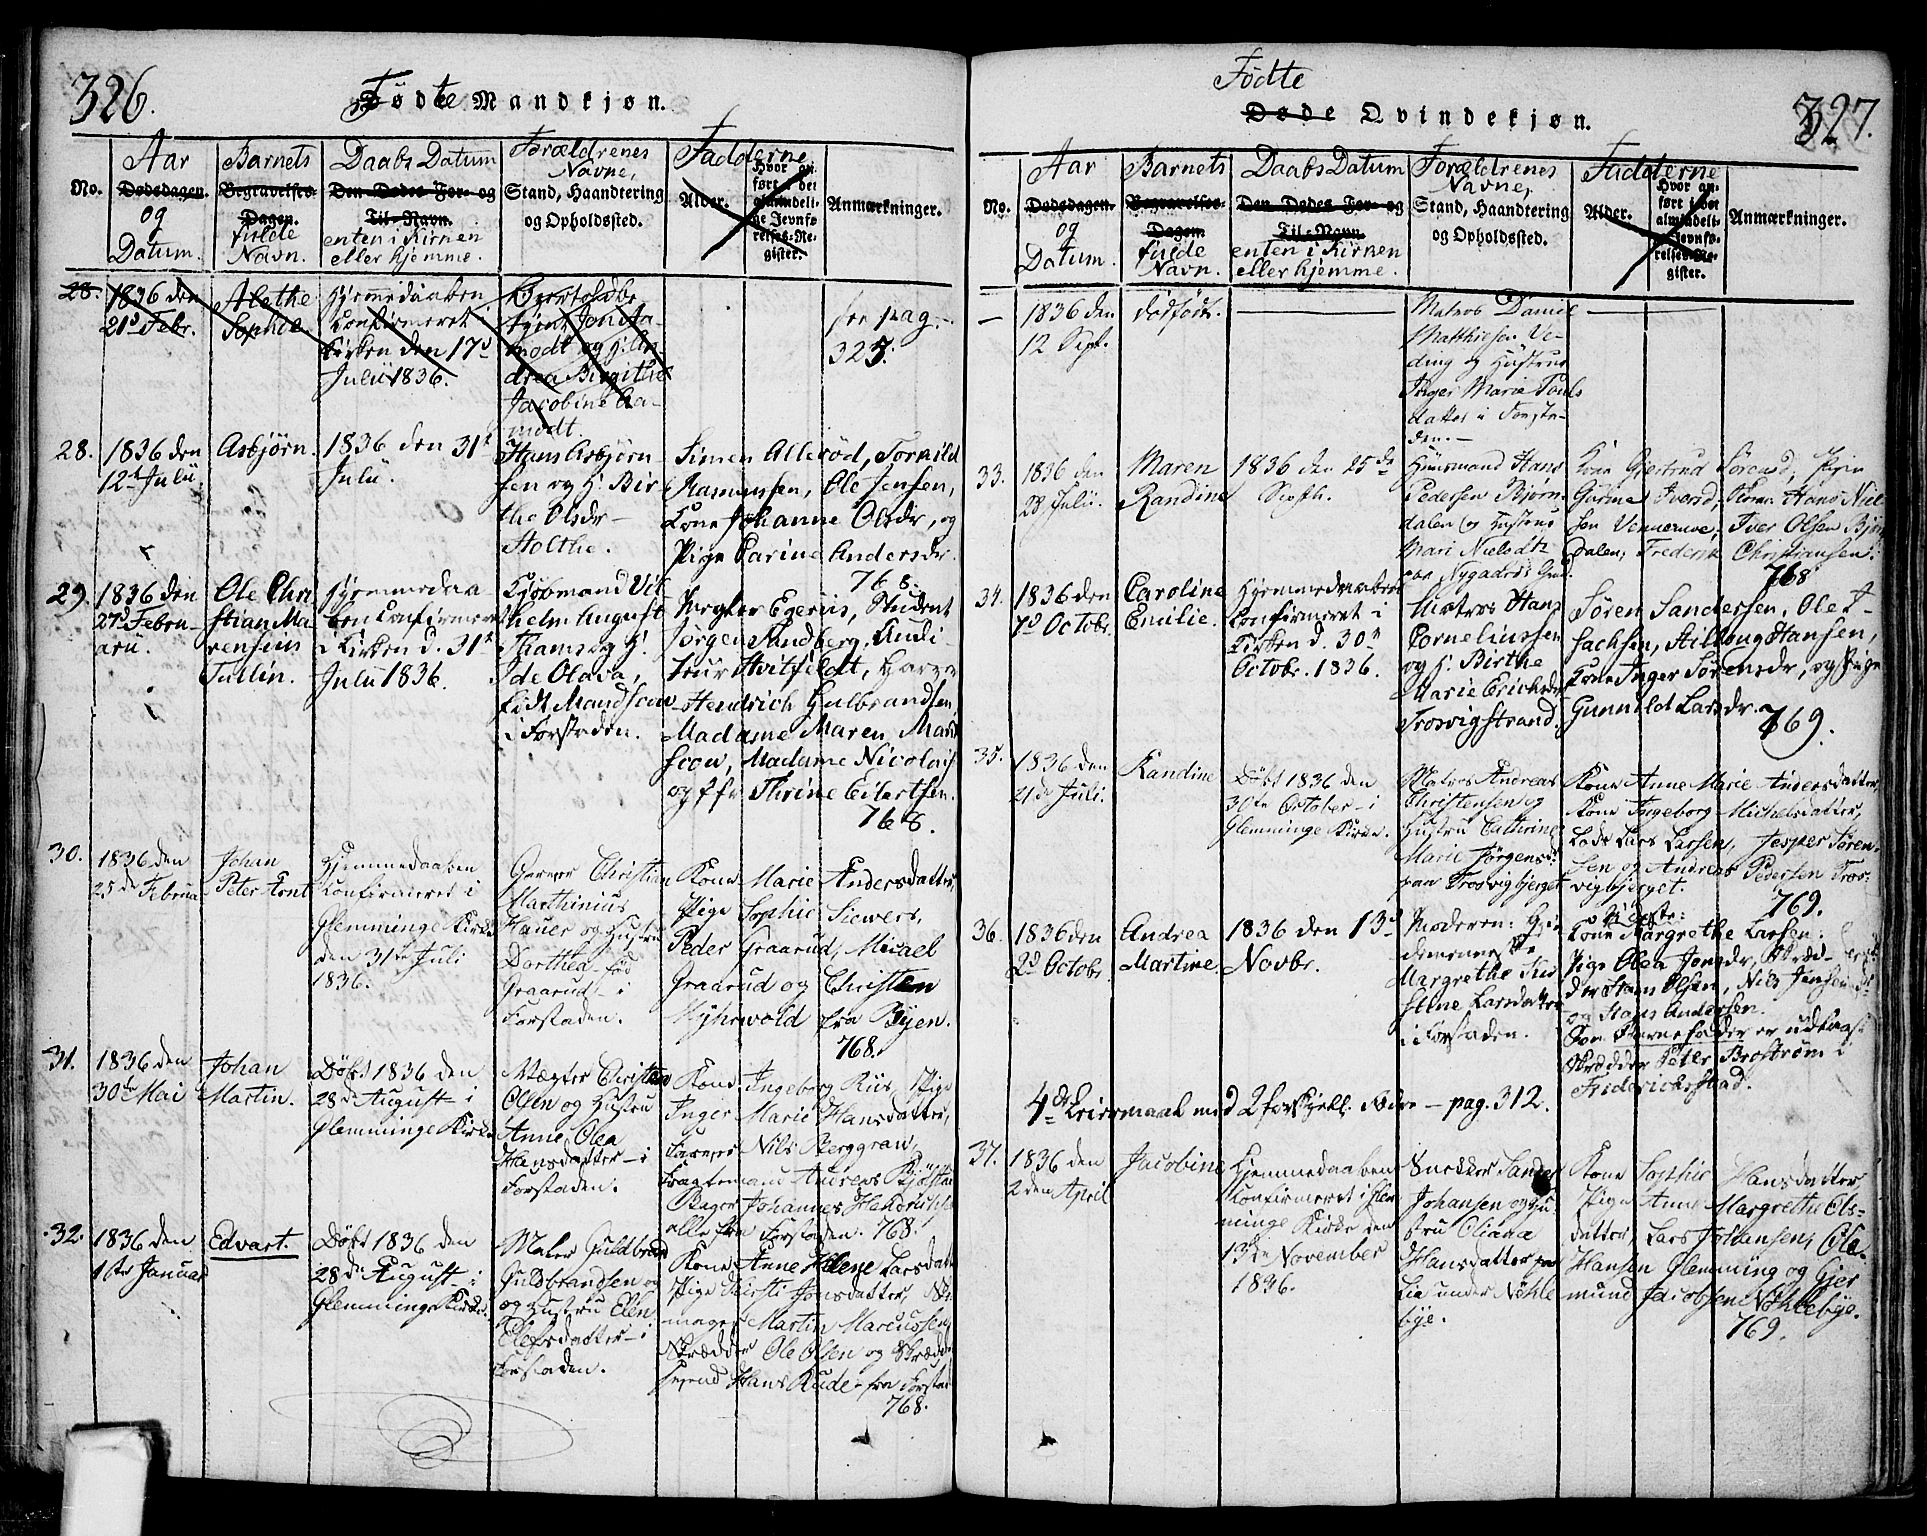 326.
Fødte Mandkjøn.
No.
Aar
Dødsdagen.
og
Datum.
Barnets
Begravelses-
Dagen.
fulde
Navn.
Daabs Datum
Den Dødes For- og
Til-Navn.
enten i Kirken
eller hjemme.
Forældrenes
Navne,
Stand, Haandtering
og Opholdssted.
Fadderne
Alder.
Hvor an-
ført i det
almindeli-
ge Jevnfø-
relses-Re-
gister.
Anmærkninger.
28.
1836 den
21d Febr.
Alethe
Sophie
Hjemmedaaben
Confirmeret i
Kirken den 17d
Julii 1836.
modt og H. An-
drea Birgithe
Jacobine Aa-
modt.
see pag.
325.
28.
1836 den
12t Julii
Asbjørn.
1836 den 31t
Julii.
Hans Asbjørn-
sen og H. Bir
the Olsdr
Holthe.
Simen Allerød, Tornild
Rasmussen, Ole Jensen,
Kone Johanne Olsdr, og
Pige Carine Andersdr.
768.
29.
1836 den
27d Febru-
arii.
Ole Chri
stian Ma
rensius
Tullin.
Hjemmedaa
ben Confirmeret
i Kirken d. 31t
Julii 1836.
Kjøbmand Vil-
helm August
Thams og H.
Ide Olava,
født Mandscow
i Forstaden.
Egerus, Student
Jørgen Sandberg, Audi-
teur Hvitfeldt,
Hendrich Gulbrandsen,
Madame Maren Mand
scow, Madame Nicolais
og Jfr Thrine Eilertsen.
768.
30.
1836 den
25de Februar
Johan
Peter Font
Hjemmedaaben
Confirmeret i
Glemminge Kirke
den 31te Juli
1836.
Garver Christian
Marthinius
Hauer og Hustru
Dorthea født
Graarud i
Forstaden.
Kone Marie Andersdatter,
Pige Sophie Siewers,
Peder Graarud, Micael
Graarud og Christen
Myhrwold fra Byen.
768.
31.
1836 den
30te Mai
Johan
Martin.
Døbt 1836 den
28de August i
Glemminge Kirke
Vægter Christian
Olsen og Hustru
Anne Olea
Hansdatter i
Forstaden.
Kone Ingeborg Riis, Pige
Inger Marie Hansdatter,
Farver Nils Berggran,
Fragtemand Andreas
Bager Johannes Hendrichs
alle fra Forstaden. 768.
32.
1836 den
1ste Januar
Edvart.
Døbt 1836 den
28de August i
Glemminge Kirke.
Maler Guldbrand
Guldbrandsen og
og Hustru Elen
Elefsdatter i
Forstaden.
Kone Anne Helene Larsdatter
Pige Kirsti Jonsdatter,
mager Martin Marcussen,
Skrædder Ole Olsen og Skrædder
svend Hans Rude fra Forstad
768.
327.
Fødte
Døde Qvindekjøn.
No.
Aar
Dødsdagen.
og
Datum.
Barnets
Begravelses-
Dagen.
fulde
Navn.
Daabs Datum
Den Dødes For- og
Til-Navn
enten i Kirken
eller hjemme.
Forældrenes
Navne,
Stand, Haandtering
og Opholdssted.
Fadderne
Alder.
Hvor an-
ført i det
almindeli-
ge Jevnfø-
relses-Re-
gister.
Anmærkninger.
—
1836 den
12 Sept.
dødfødt.
Matros Daniel
Matthisen Ve-
ding og Hustrue
Inger Marie Pouls
datter i Forsta-
den.
33.
1836 den
28 Julii.
Maren
Randine
1836 den 25de
Septb.
Huusmand Hans
Pedersen Bjørn
dalen og Hustrue
Mari Nielsdtr
Kone Gjertrud Sørensd, Pige
Gurine Iversd, Hans Niel
sen Vennerwe, Iver Olsen Bjørn
dalen, Frederik Christiansen.
768
34.
1836 den
7d Octobr.
Caroline
Emilie.
Hjemmedaaben
Confirmeret i
Kirken d. 30te
Octobr. 1836.
Matros Hans
Corneliussen
og H. Birthe
Marie Erichsdr
Trosvigstrand.
Søren Sandersen, Ole I-
sachsen, Hansen,
Kone Inger Sørensdr, og Pige
Gunnild Larsdr.
769.
35.
1836 den
21de Juli.
Randine
Døbt 1836 den
30te October i
Glemminge Kirke.
Matros Andreas
Christensen og
Hustru Cathrine
Marie Jørgensd.
paa Trosvigbjerget
Kone Anne Marie Andersdatter,
Kone Ingeborg Michelsdatter,
Lods Lars Larsen, Jesper Søren-
sen og Andreas Pedersen Tros-
vigbjerget.
769.
36.
1836 den
2d Octobr.
Andrea
Martine.
1836 den 13d
Novbr.
Moderen:
Margrethe Kir
stine Larsdatter
i Forstaden.
Kone Margrethe Larsen.
Pige Olea Jonsdr, Skræd-
der Hans Olsen, Nils Jensen
og Hans Andersen.
Som Barnefader er udlagt
Skrædder Peter Brostrøm i
Friderichsstad.
4de Leiermaal med 2 forskjell. Mødre — pag. 312.
37.
1836 den
2den April
Jacobine
Hjemmedaaben
Confirmeret i Glem
minge Kirke den
13de November
1836.
Snekker Sander
Johansen og Hu-
stru Oliana
Hansdatter paa
Lia under Nøkle
bye.
Kone Sophie Hansdatter,
Pige Anne Margrethe Els-
datter, Lars Johansen, Ole
Hansen Glemming og Gjer
mund Jacobsen Nøklebye.
769.